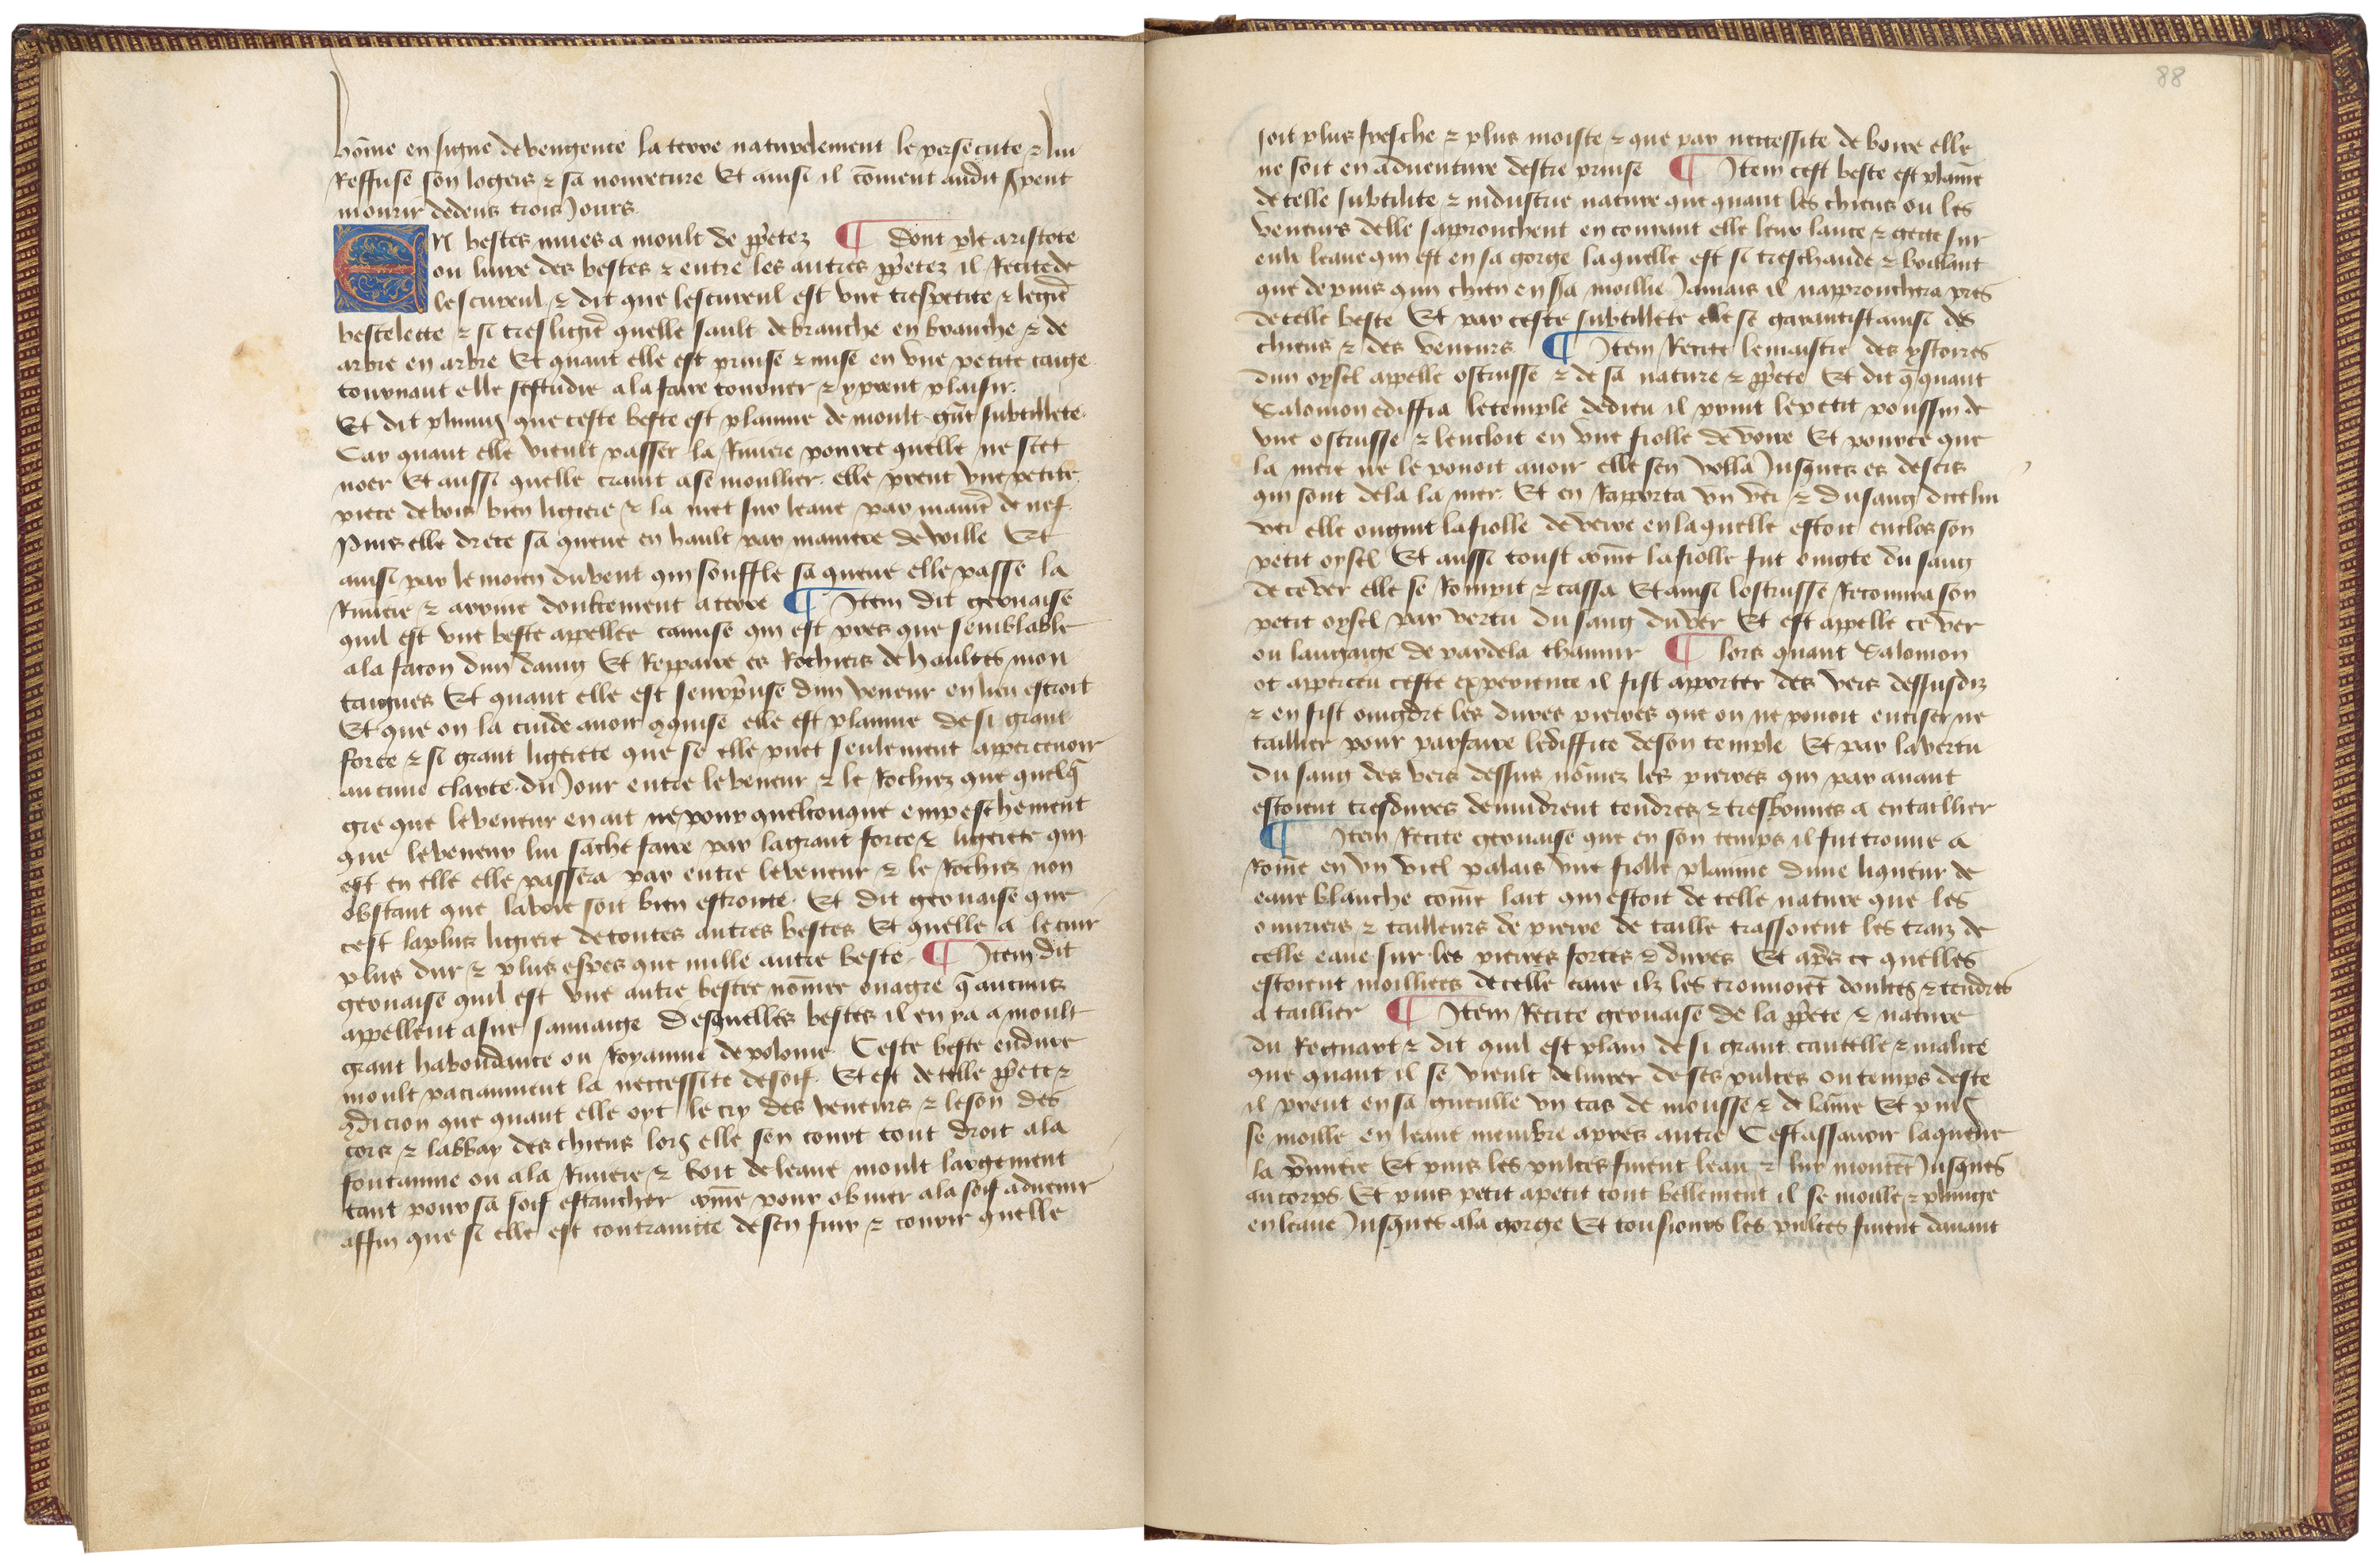 hōme en signe de vengence la terre naturelement le persecute ⁊ lui
Reffuse son logeis ⁊ sa nourreture Et ainsi il cōment audit serpent
mourir dedens trois Jours
EN bestes mues a moult de ꝓpetez ¶ dont ple aristote
ou liure des bestes ⁊ entre les autres ꝓpetez il Recite de
lescureul ⁊ dit que lescureul est vne trespetite ⁊ legie
bestelette ⁊ si tresligie quelle sault de branche en branche ⁊ de
arbre en arbre Et quant elle est prinse ⁊ mise en vne petite caige
tournant elle sestudie a la faire tourner ⁊ y prent plaisir.
Et dit plinius que ceste beste est plainne de moult gnt subtillete.
Car quant elle vieult passer la Riuiere pource quelle ne scet
noer Et aussi quelle craint a se moullier. elle prent vne petite
piece de bois bien ligiere ⁊ la met sur leaue par manie de nef.
Puis elle drece sa queue en hault par maniere de voille Et
ainsi par le moien du vent qui souffle sa queue elle passe la
Riuiere ⁊ arriue doulcement a terre ¶ Item dit geruaise
quil est vne beste appellee camuse qui est pres que semblable
a la facon dun daing Et Reppaire es Rochiers de haultes mon
taignes Et quant elle est seurpnse dun veneur en lieu estroit
Et que on la cuide auoir ꝯquise elle est plainne de si grant
force ⁊ si grant ligerete que se elle puet seulement appercevoir
aucune clarte du Jour entre le veneur ⁊ le Rochiez que quelq̄
gre que le veneur en ait ne pour quelconque empeschement
que le veneur lui sache faire par la grant force ⁊ ligerete qui
est en elle elle passera par entre le veneur ⁊ le Rochiez non
obstant que la voie soit bien estroite. Et dit geruaise que
cest la plus ligiere de toutes autres bestes Et quelle a le cuir
plus dur ⁊ plus espes que nulle autre beste. ¶ Item dit
geruaise quil est vne autre bestee nōmee onagre q̄ aucuns
appellent asne sauuaige Desquelles bestes il en ya a moult
grant habondance ou Royaume de polonie Ceste beste endure
moult paciamment la neccessite de soif. Et est de telle ꝓpete ⁊
ꝯdicion que quant elle oyt le cry des veneurs ⁊ le son des
cors ⁊ labbay des chiens lors elle sen court tout droit a la
fontainne ou a la Riuiere ⁊ boit de leaue moult largement
tant pour sa soif estaucher ꝯme pour obuier a la soif aduenir
affin que si elle est contrainte de sen fuir ⁊ courir quelle
soit plus fresche ⁊ plus moiste ⁊ que par neccessite de boire elle
ne soit en aduenture destre prinse ¶ Item cest beste est plaīne
de telle subtilite ⁊ industrie nature que quant les chiens ou les
veneurs delle sapprouchent en courant elle leur lance ⁊ gecte sur
eulx leaue qui est en sa gorge laquelle est si treschaude ⁊ boillant
que depuis quun chien en sa moillie Jamais il napprouchera pres
de telle beste Et par ceste subtillete elle se garantist ainsi des
chiens ⁊ des veneurs ¶ Item Recite le maistre des ystoires
dun oysel appelle ostrusse ⁊ de sa nature ⁊ ꝓpete Et dit q̄ quant
Salomon ediffia le temple de dieu il print le petit poussin de
vne ostrusse ⁊ lencloit en vne fiolle de voire Et pource que
la mere ne le pouoit auoir elle sen volla Jusques es desers
qui sont dela la mer. Et en Rapporta vn ver ⁊ du sang dicelui
ver elle oingnit la fiolle de verre en laquelle estoit enclos son
petit oysel Et aussi toust ꝯme la fiolle fut oingte du sang
de ce ver elle se Rompit ⁊ cassa Et ainsi lostrusse Recouura son
petit oysel par vertu du sang du ver Et est appelle ce ver
ou langaige de pardela thamur ¶ lors quant Salomon
ot apperceu ceste experience il fist apporter des vers dessusdiz
⁊ en fist oingdre les dures pierres que on ne pouoit entiser ne
taillier pour parfaire lediffice de son temple Et par la vertu
du sang des vers dessus nōmez les pierres qui par auant
estoient tresdures deuindrent tendres ⁊ tresbonnes a entaillier
¶ Item Recite geruaise que en son temps il fut trouue a
Rome en vn viel palais vne fiolle plainne dune liqueur de
eaue blanche come lait qui estoit de telle nature que les
ouuriers ⁊ tailleurs de pierre de taille trassoient les traiz de
celle eaue sur les pierres fortes ⁊ dures Et apres ce quelles
estoient moilliees de celle eaue ilz les trouuoiēt doulces ⁊ tendres
a taillier ¶ Item Recite geruaise de la ꝓpete ⁊ nature
du Regnart ⁊ dit quil est plain de si grant cautelle ⁊ malice
que quant il se vieult deliurer de ses pulces ou temps deste
il prent en sa gueulle vn tas de mousse ⁊ de laine Et puis
se moille en leaue membre apres autre Cest assauoir la queue
la p̄miere Et puis les pulces fuient leau ⁊ luy montēt Jusques
au corps Et puis petit a petit tout bellement il se moille ⁊ plunge
en leaue Jusques a la gorge Et tousiours les pulces fuient dauant
88